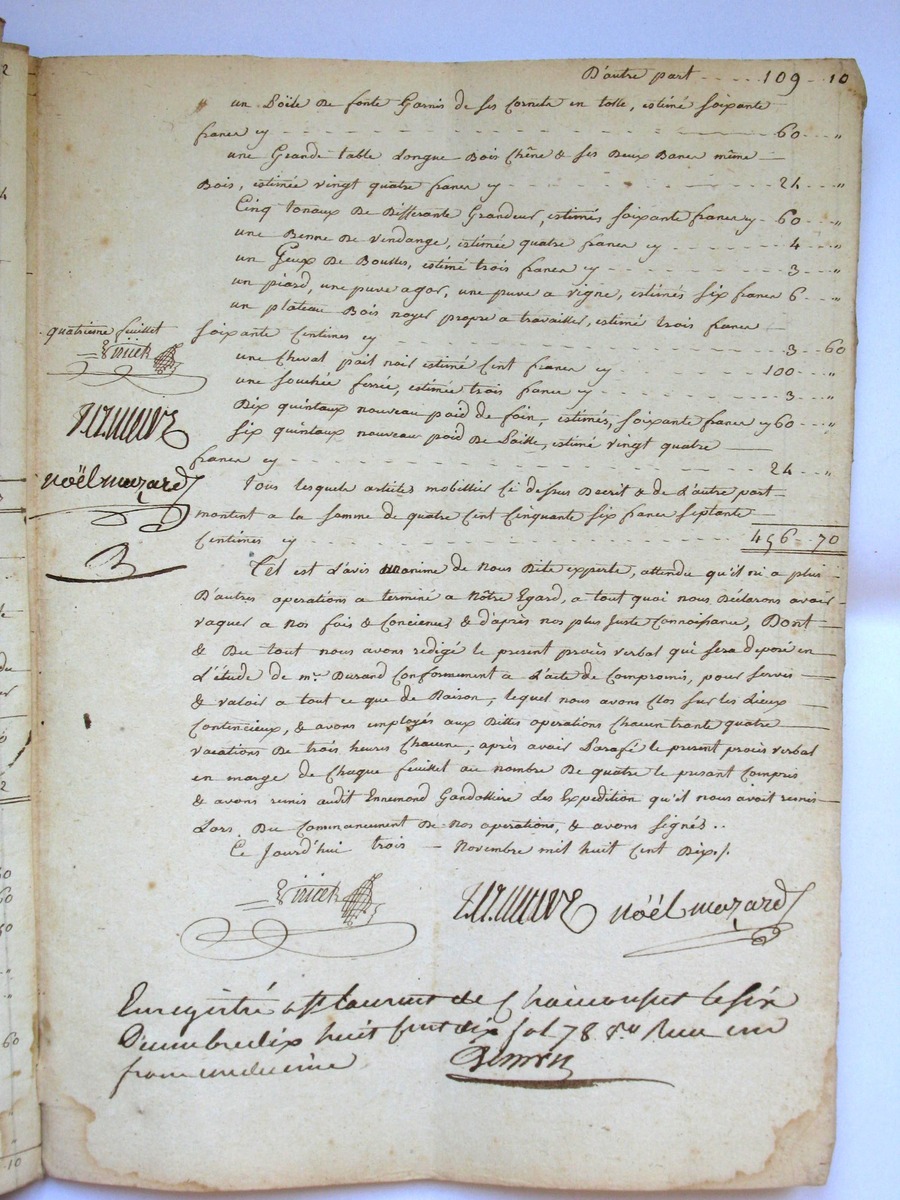 D'autre part - - - - 109 - - 10
" un Poële de fonte Garnis de ses Cornets en tolle, estimé soixante
francs cy - - - 60 - - "
une Grande table Longue Bois Chêne & ses Deux Bancs même
Bois, estimée vingt quatre francs cy - - - 24 - - "
Cinq tonaux De Differante Grandeur, estimés soixante francs cy - 60 - - "
une Benne De vendange, estimée quatre francs cy - - - 4 - - "
un Geux De Boulles, estimé trois francs cy - - - 3 - - "
un piard, une puve a gor, une puve a vigne, estimés six francs 6 - - "
un plateau Bois noyer propre a travailler, estimé trois francs
soixante Centimes cy - - - 3 - - 60
une Cheval pait noir estimé Cent francs cy - - - 100 - - "
une souchée ferrée, estimée trois francs cy - - - 3 - - "
Dix quintaux nouveau poid de foin, estimés, soixante francs cy 60 - - "
six quintaux nouveau poid De Paille, estimé vingt quatre
francs cy - - - 24 - - "
Tous lesquels articles mobillier Ci dessus Decrit & de L'autre part
montent a la somme de quatre Cent Cinquante six francs septante
Centimes cy - - - 456 = 70
quatrieme feuillet
noël mozard
Tel est L'avis unanime de Nous Dits experts, attendu qu'il ni a plus
D'autres operations a terminé a Nôtre Egard, a tout quoi nous Déclarons avoir
vaquer a Nos fois & Conciences & d'après nos plus Juste Connoissance, Dont
& Du tout nous avons redigé le present procès verbal qui sera deposé en
L'étude de mr. Durand Conformement a L'acte de Compromis, pour servir
& valoir a tout ce que de Raison, lequel nous avons Clos sur les Lieux
Contencieux, & avons employés aux Dittes operations Chacun trante quatre
vacations De trois heures Chacune, après avoir Parafé le present procès verbal
en marge de Chaque feuillet au nombre De quatre le presant Compris
& avons remis audit Ennemond Gandolliere Les Expedition qu'il nous avoit remis
Lors Du Commancement De Nos operations, & avons signés..
Ce Jourd'hui trois - Novembre mil huit Cent Dix./.
noël mozard
Enregistré a St laurent de Chamousset le six
Novembre dix huit cent dix fol. 78 Vo. Recu un
franc